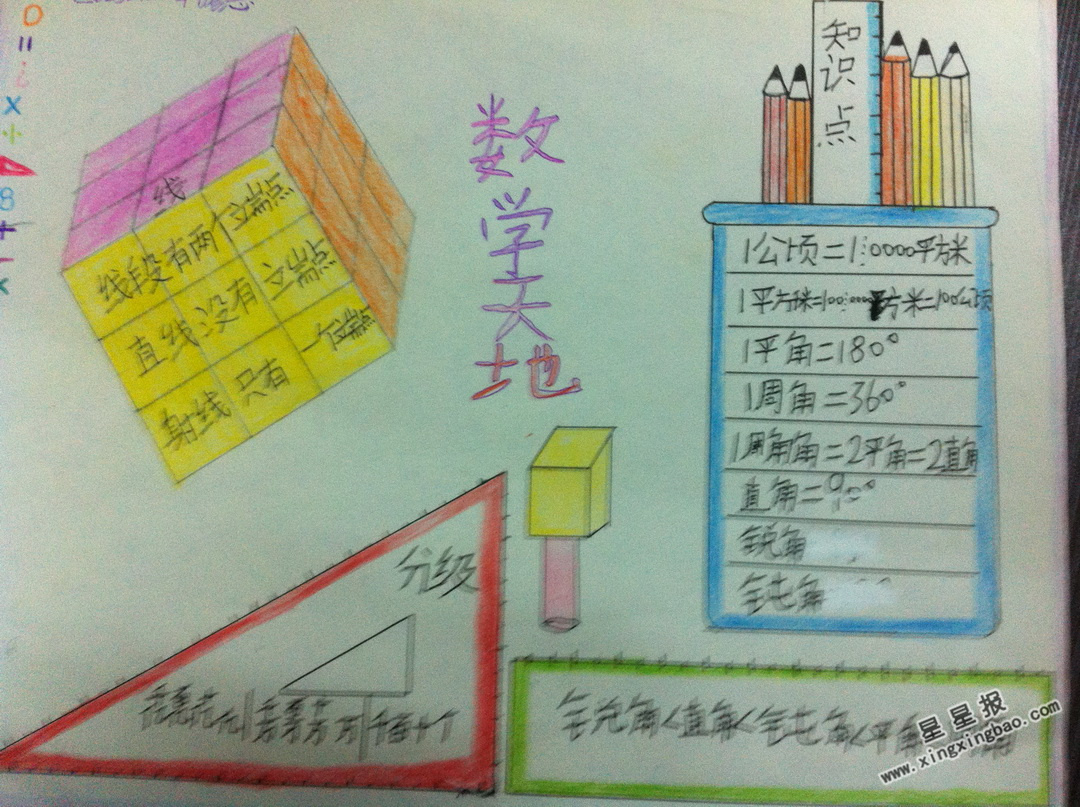 数学天地
线
线段有两个立端点
直线没有立端点
射线只有一个立端点
知识点
1公顷=1:0000平方米
1平方米=100:0000平方米=100公顷
1平角=180°
1周角=360°
1周角角=2平角=2直角
直角=90°
锐角
钝角
分级
千百十个
锐角<直角<钝角<平角
星星报
www.xingxingbao.com